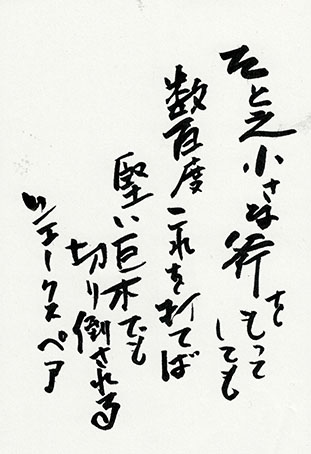 たと之小さな斧を
もってしても
数百度これを打てば
堅い巨木でも
切り倒される
シェークスペア